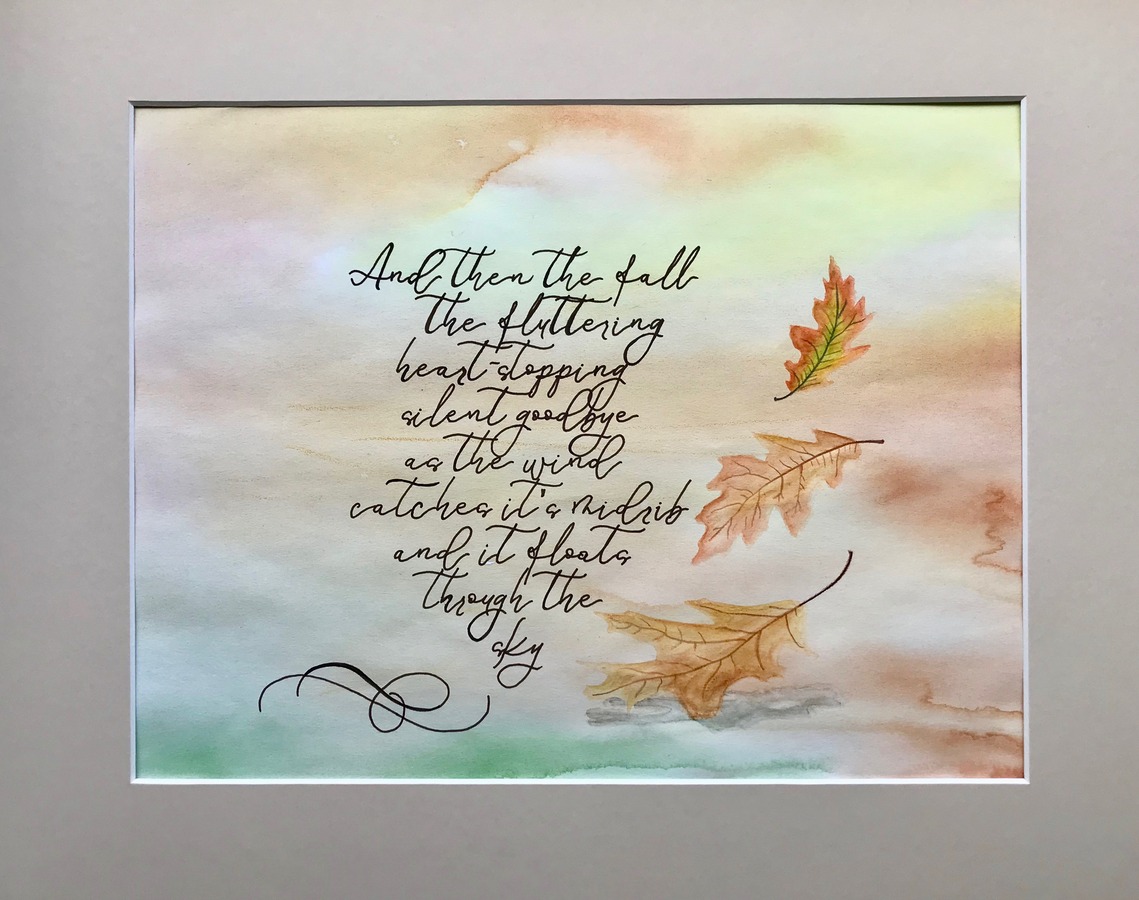 And then the fall
the fluttering
heart-stopping
silent goodbye
as the wind
catches it's midrib
and it floats
through the
sky